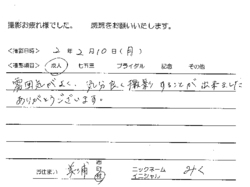 撮影お疲れ様でした。 感想をお願いいたします。
<撮影日時> 2年 2月10日(月)
<撮影項目> 成人 七五三 ブライダル 記念 その他
雰囲気がよく、気分良く撮影することが出来ました
ありがとうございます。
お住まい 美浦 ニックネーム イニシャル みく